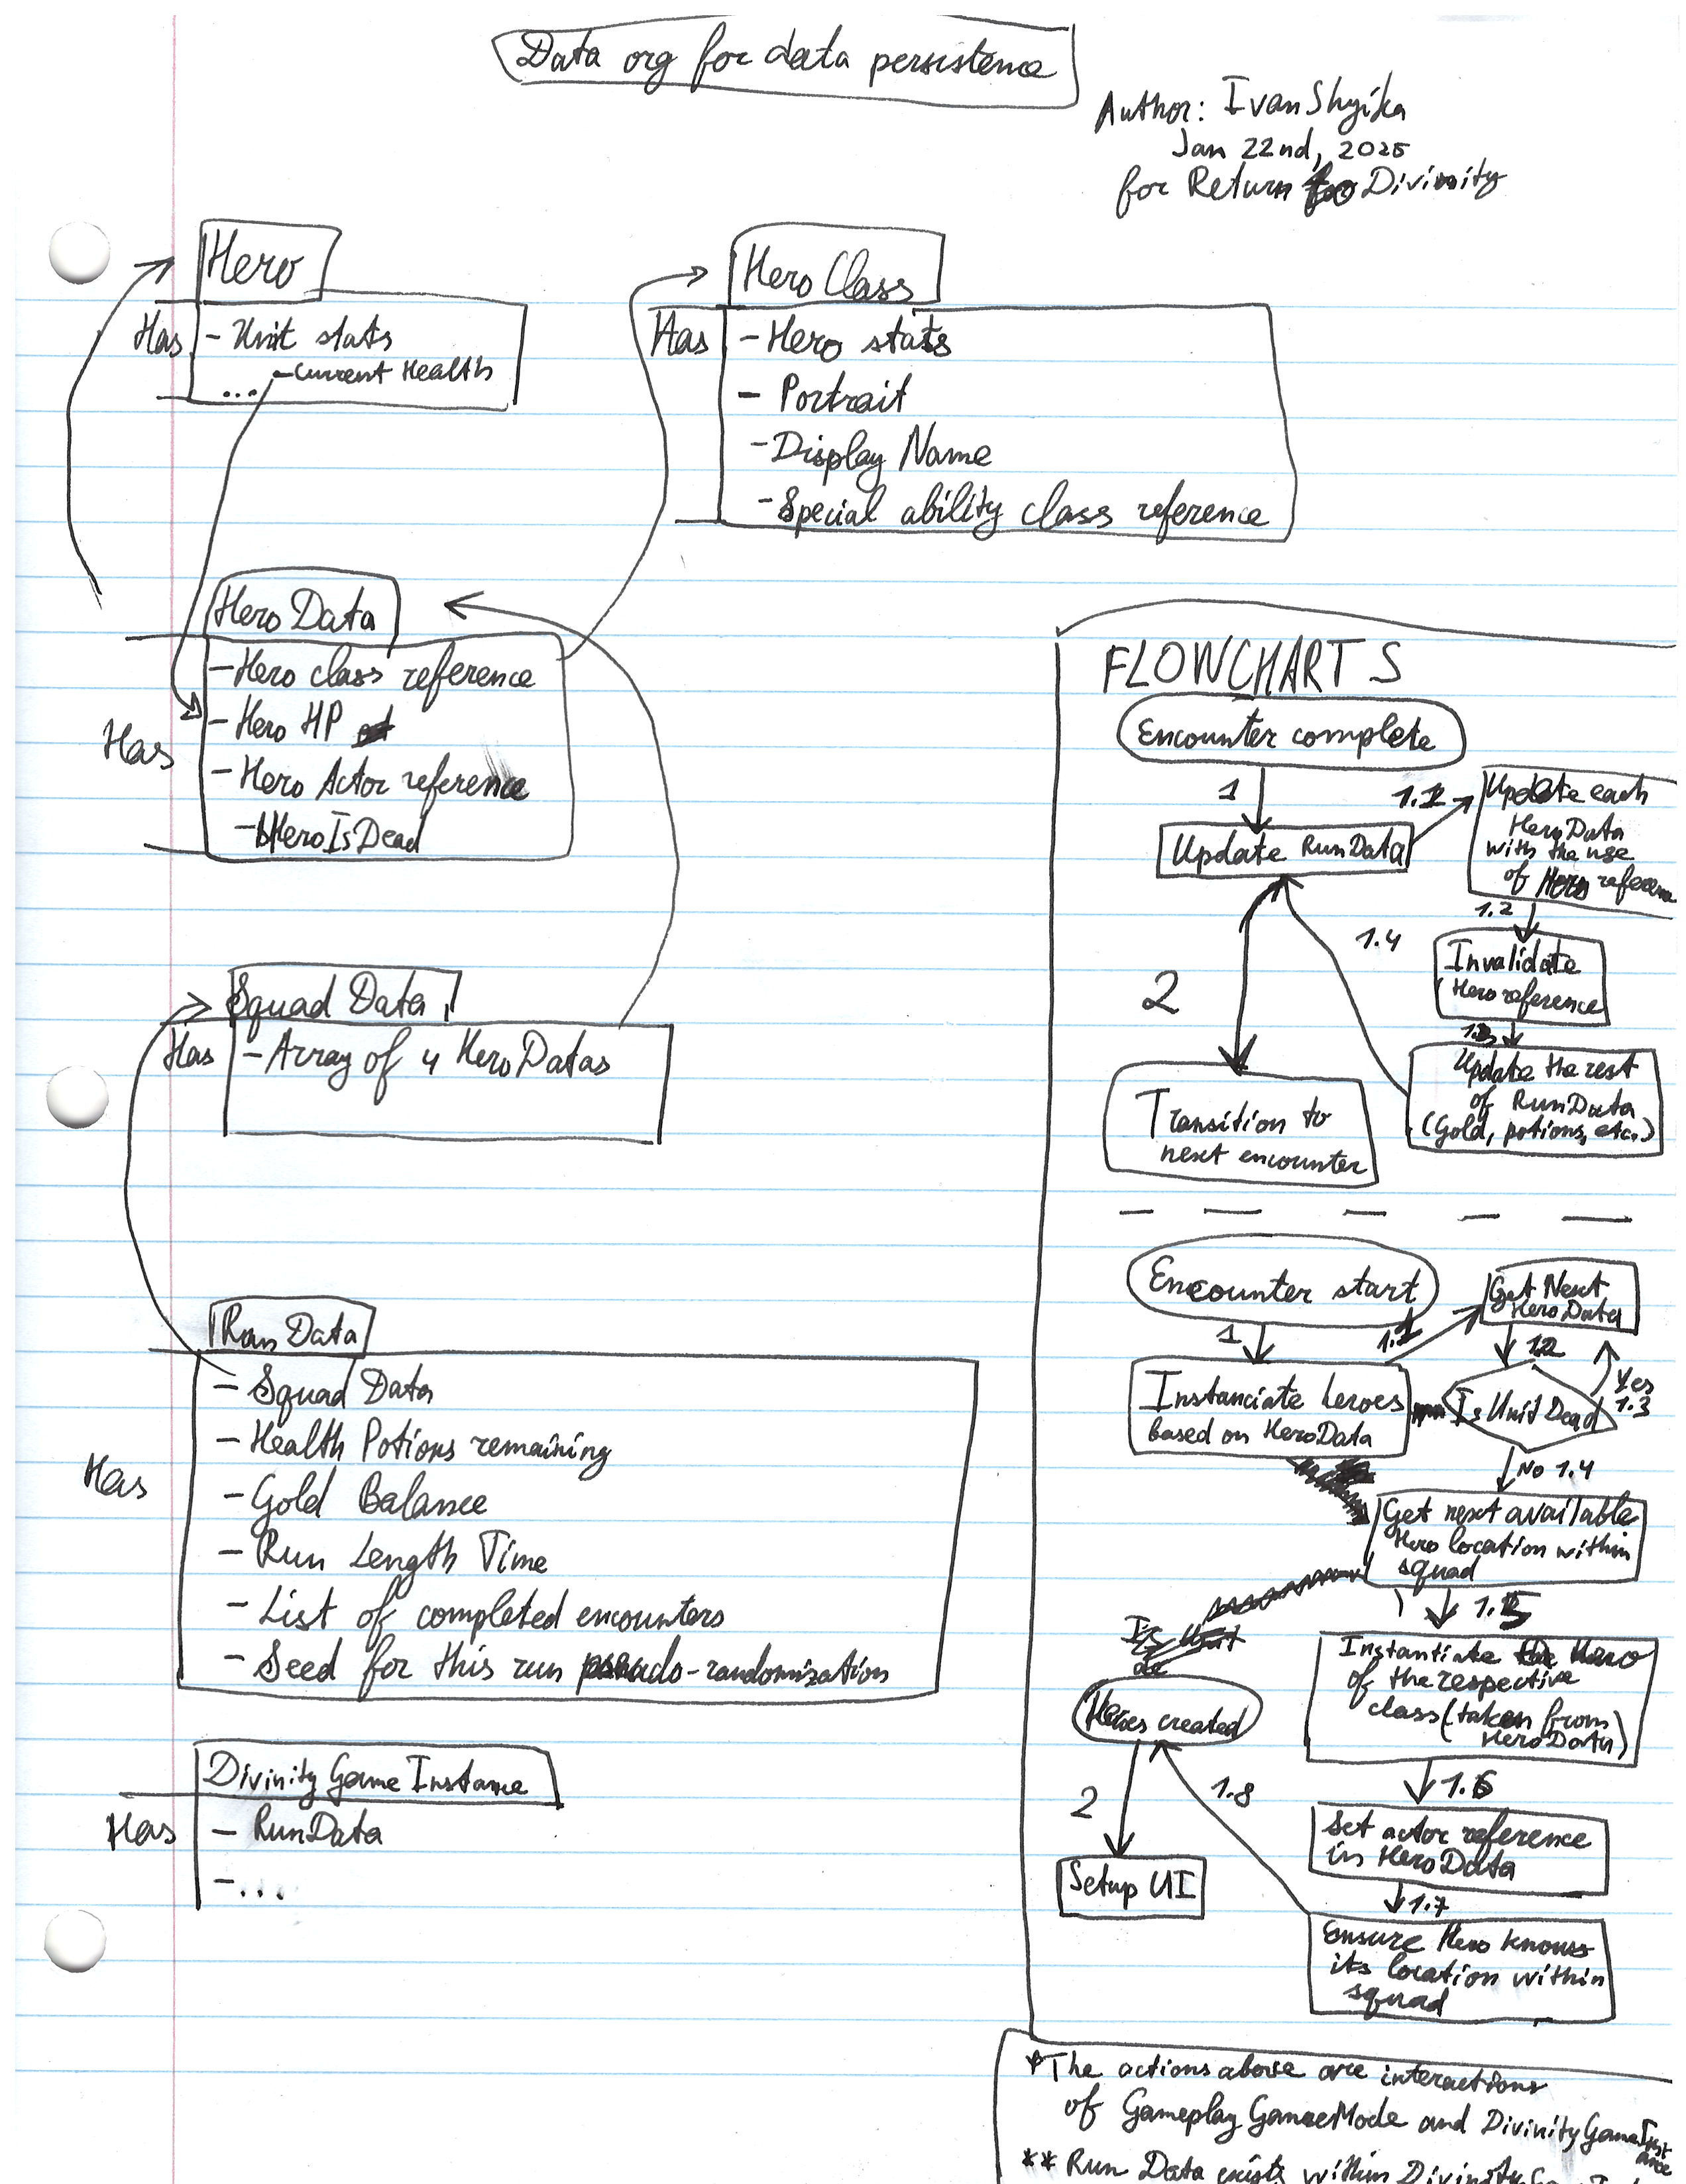 Data org for data persistence
Author: Ivan Shyika
Jan 22nd, 2025
for Return to Divinity
Hero
Has
- Unit stats
- Current Health
...
Hero Class
Has
- Hero stats
- Portrait
- Display Name
- Special ability class reference
Hero Data
Has
- Hero class reference
- Hero HP
- Hero Actor reference
- bHeroIsDead
Squad Data
Has
- Array of 4 HeroDatas
Run Data
Has
- Squad Data
- Health Potions remaining
- Gold Balance
- Run Length Time
- List of completed encounters
- Seed for this run pseudo-randomization
Divinity Game Instance
Has
- RunData
- ...
FLOWCHARTS
Encounter complete
1
Update RunData
1.1
Update each
HeroData
with the use
of Hero
1.2
Invalidate
Hero reference
1.3
Update the rest
of RunData
(Gold, potions, etc.)
1.4
2
Transition to
next encounter
Encounter start
1
Instanciate heroes
based on HeroData
1.1
Get Next
HeroData
1.2
Is Unit Dead
Yes
1.3
No 1.4
Get next available
Hero location within
squad
1.5
Instantiate the Hero
of the respective
class (taken from
HeroData)
1.6
Set actor reference
in HeroData
1.7
Ensure Hero knows
its location within
squad
1.8
Heroes created
2
Setup UI
*The actions above are interactions
of Gameplay GameMode and DivinityGameInstance
** Run Data exists within